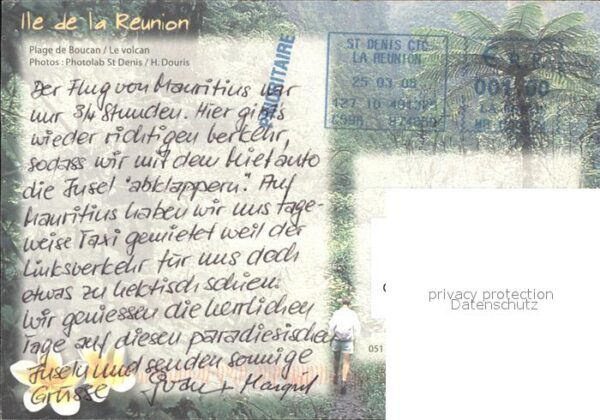 Ile de la Reunion
Plage de Boucan / Le volcan
Photos : Photolab St Denis / H. Douris
PRIORITAIRE
ST DENIS CTC
LA REUNION
25 03 08
001,00
LA
Der Flug von Mauritius war
nur 3/4 Stunden. Hier gibt's
wieder richtigen Verkehr,
sodass wir mit dem Mietauto
die Insel "abklappern". Auf
Mauritius haben wir uns tage-
weise Taxi gemietet weil der
Linksverkehr für uns doch
etwas zu hektisch schien.
Wir geniessen die herrlichen
Tage auf diesen paradiesischen
Inseln und senden sonnige
Grüsse + Margrit
051
privacy protection
Datenschutz